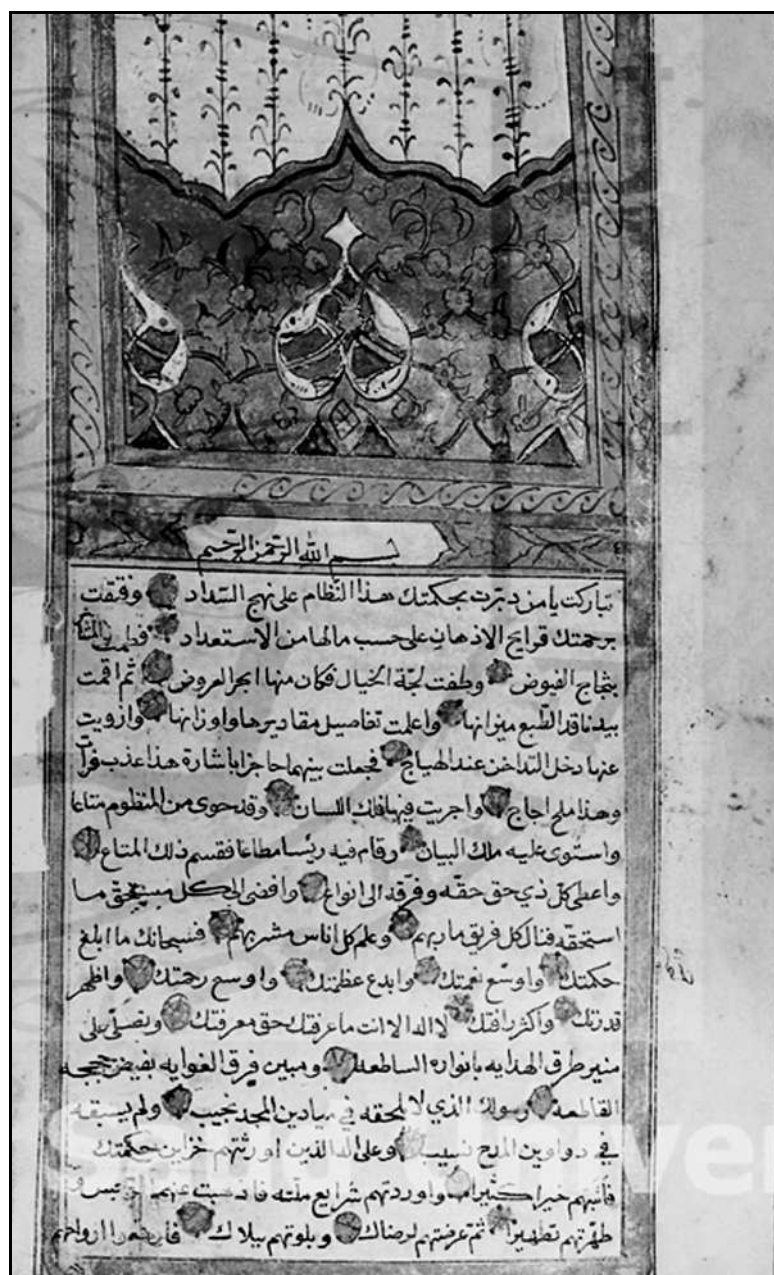 بسم الله الرحمن الرحيم
تباركت يا من دبرت بحكمتك هذا النظام على نهج السداد ووفقت
برحمتك قرايح الاذهان على حسب مالها من الاستعداد فطمت
بثجاج الفيوض وطفت لجة الخيال فكان منها ابجر العروض ثم اقمت
بيد ناقد الطبع ميزانها واعلمت تفاصيل مقاديرها واوزانها وازويت
عنها دخل التداخل عند الهياج فجعلت بينهما حاجزا باشارة هذا عذب فرات
وهذا ملح اجاج واجريت فيها فلك اللسان وقد حوى من المنظوم متاعا
واستوى عليه ملك البيان وقام فيه رئسا مطاعا فقسم ذلك المتاع
واعطى كل ذي حق حقه وفرقه الى انواع وافضى الى كل مستحق ما
استحقه فنال كل فريق ماربهم وعلم كل اناس مشربهم فسبحانك ما ابلغ
حكمتك واوسع نعمتك وابدع عظمتك واوسع رحمتك واظهر
قدرتك واكثر رافتك لا اله الا انت ما عرفناك حق معرفتك ونصلي على
منير طرق الهدايه بانواره الساطعه ومبين فرق الغوايه بفيض حججه
القاطعه رسولك الذي لا يلحقه في ميادين المجد نجيب ولم يسبقه
في دواوين المدح نسيب وعلى اله الذين اورثتهم خزاين حكمتك
فاتيتهم خيرا كثيرا واوردتهم شرايع ملته فاذهبت عنهم الرجس و
طهرتهم تطهيرا ثم عرضتهم لرضاك وبلوتهم ببلاك ارواحهم